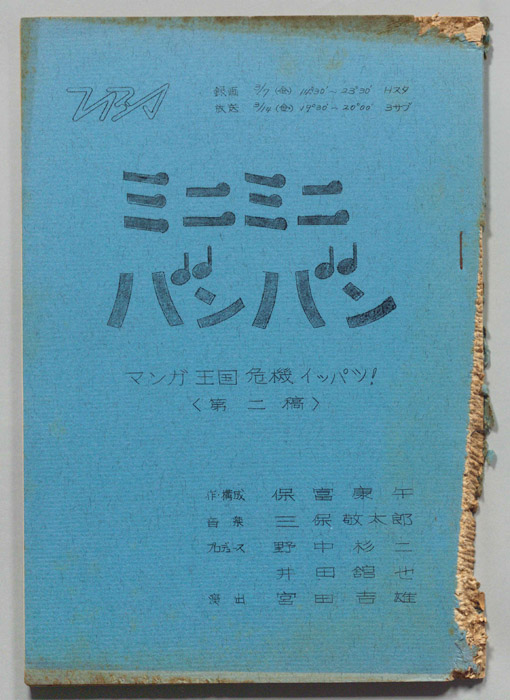 TBS
録画 2/7(金) 14°30'~23°30' Hスタ
放送 2/14(金) 19°30'~20°00' 3サブ
ミニミニ
バンバン
マンガ王国危機イッパツ!
〈第二稿〉
作・構成 保富康午
音楽 三保敬太郎
プロデュース 野中杉二
井田館也
演出 宮田吉雄